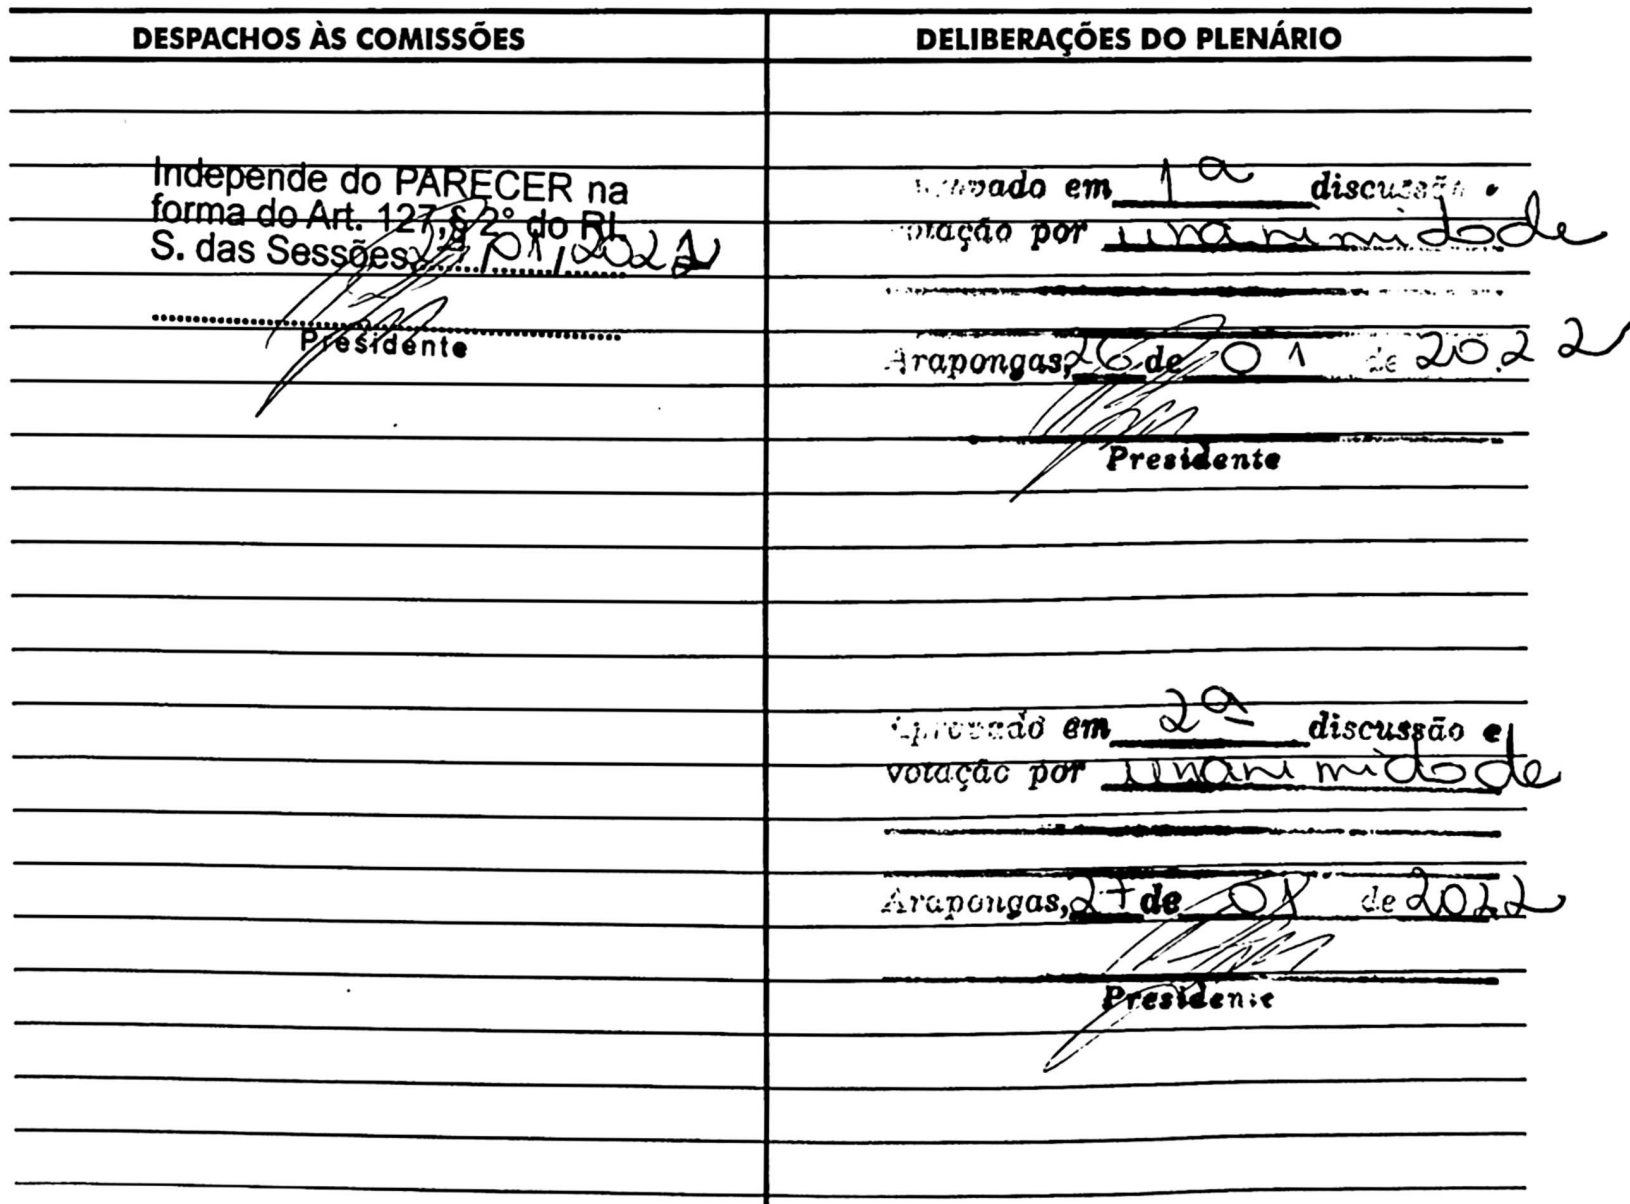 DESPACHOS ÀS COMISSÕES
Independe do PARECER na
forma do Art. 127,§ 2° do RI.
S. das Sessões /01/2021
Presidente
DELIBERAÇÕES DO PLENÁRIO
em 1ª discussão e
votação por unanimidade
Arapongas, 26 de 01 de 2022
Presidente
Aprovado em 2ª discussão e
votação por unanimidade
Arapongas, 27 de 01 de 2022
Presidente